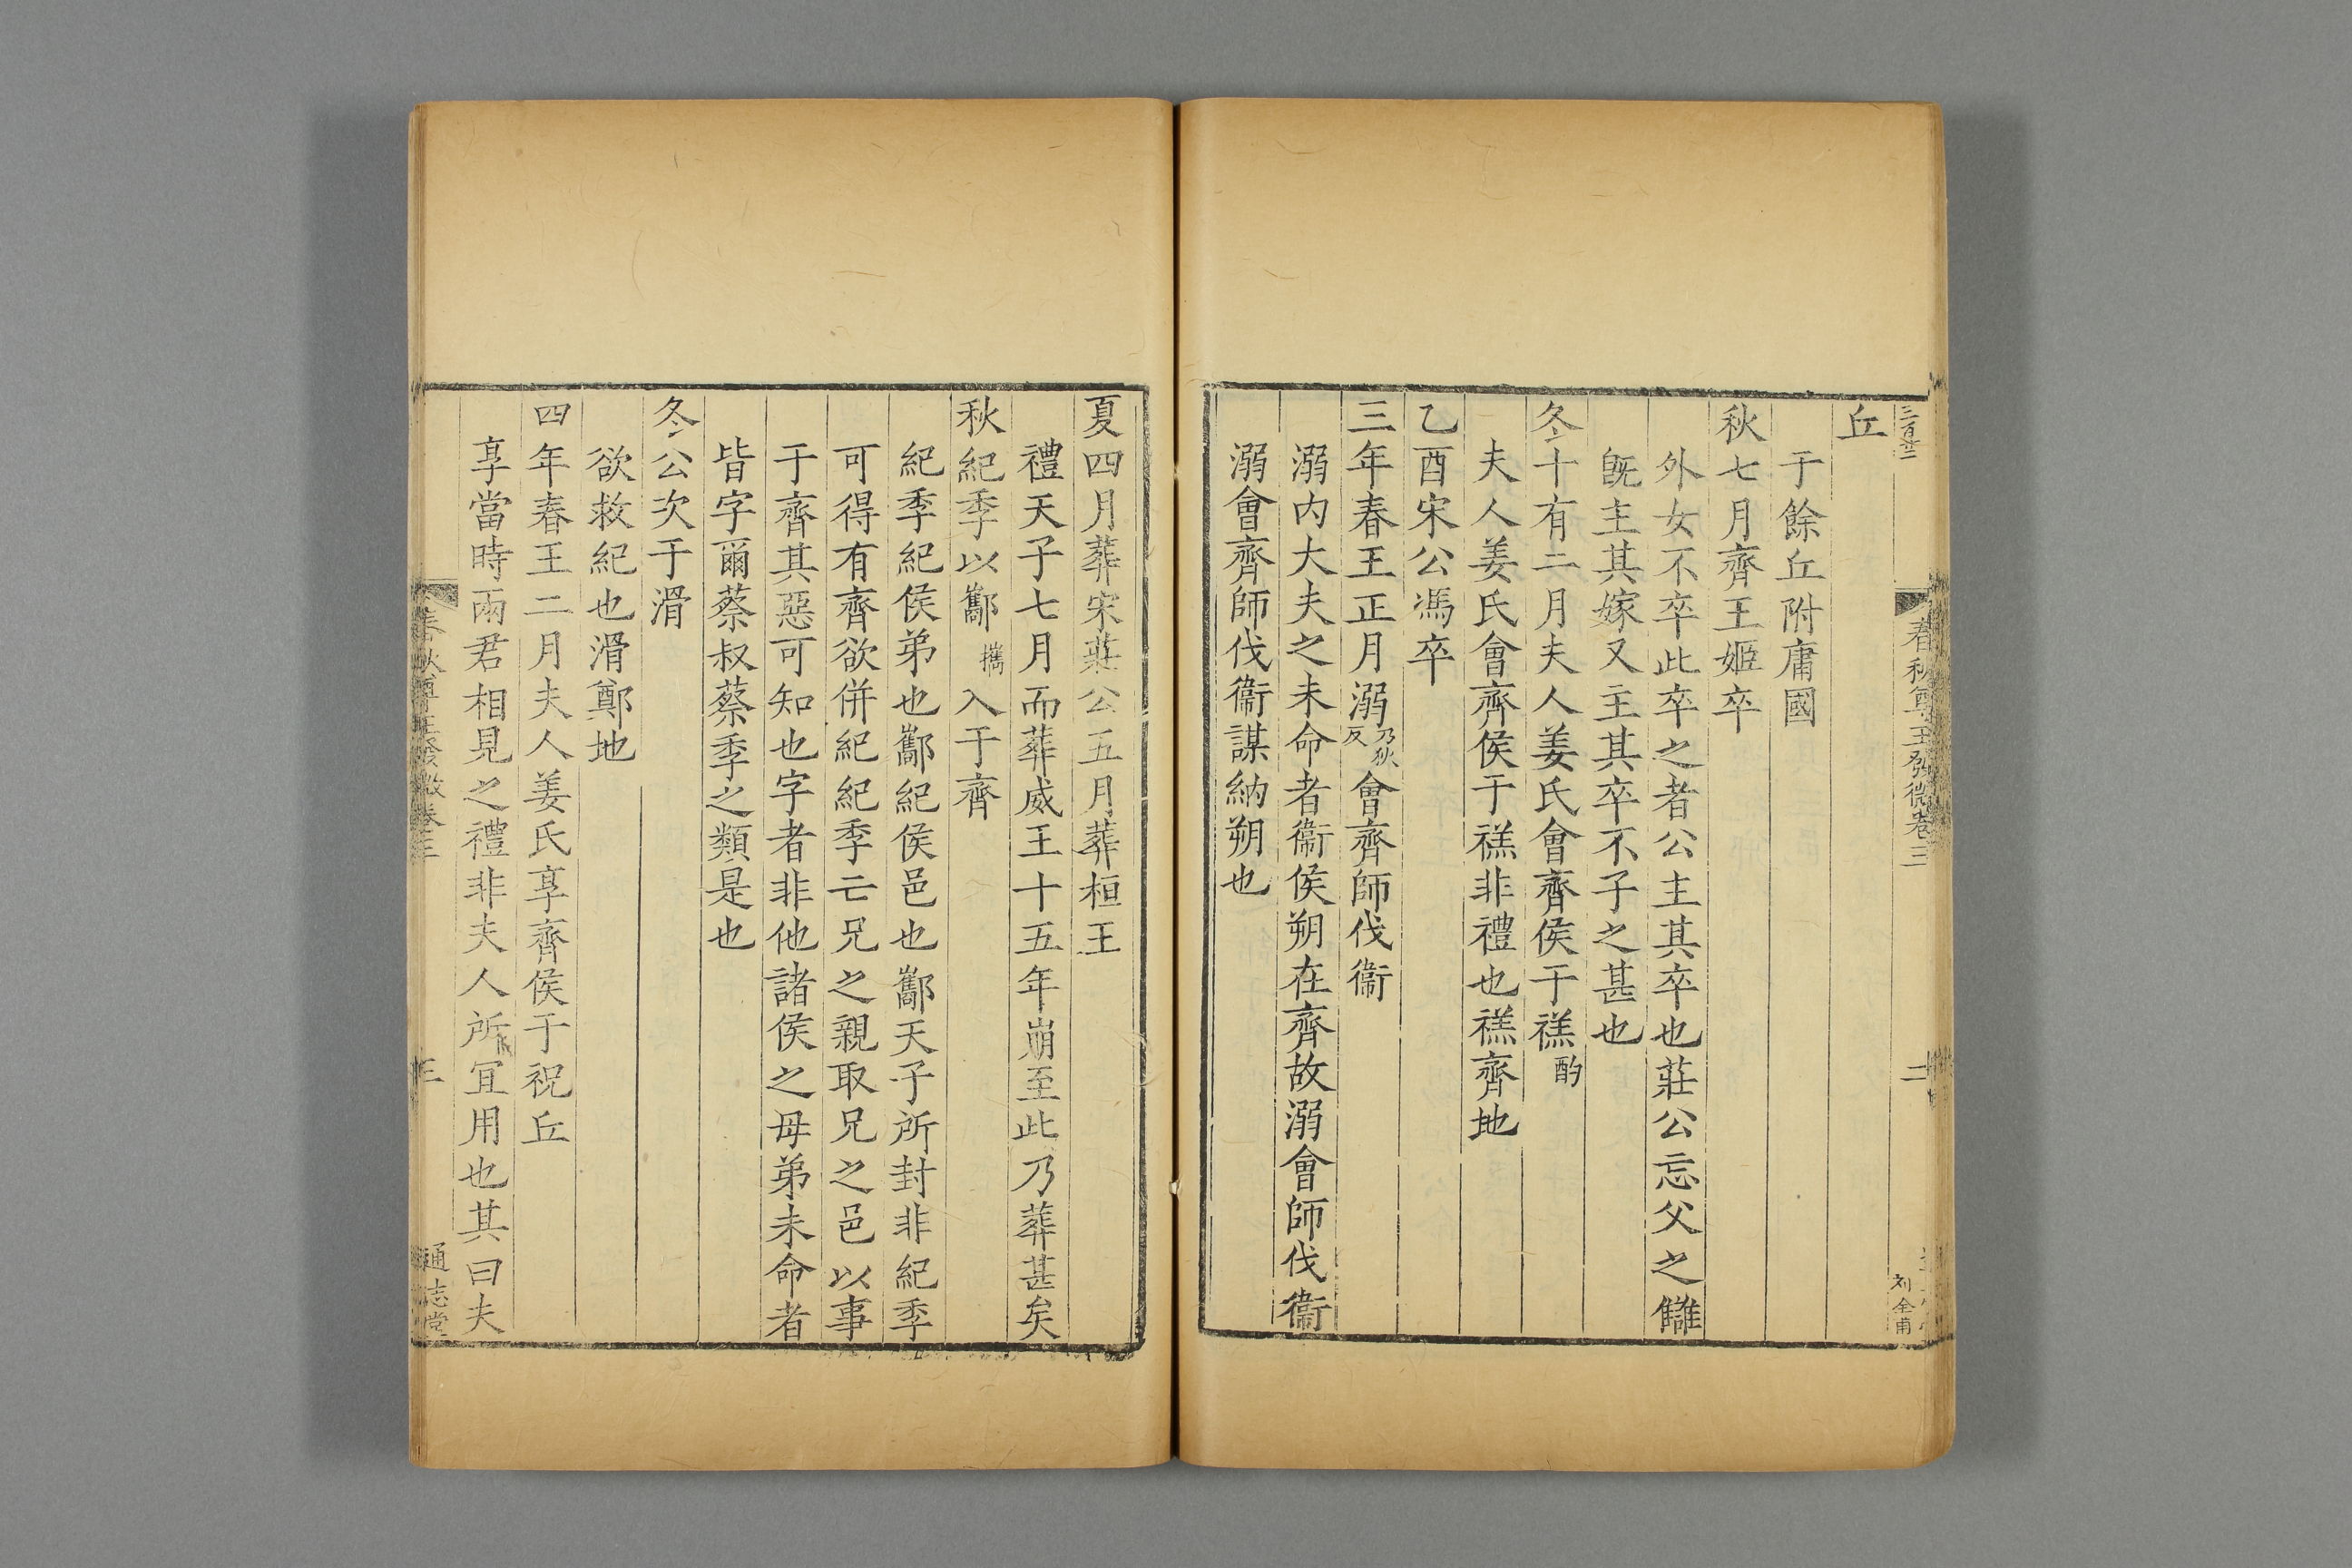 三百廿二
春秋尊王發微卷三
二
刘全甫
丘
于餘丘附庸國
秋七月齊王姬卒
外女不卒此卒之者公主其卒也莊公忘父之讎
旣主其嫁又主其卒不子之甚也
冬十有二月夫人姜氏會齊侯于禚酌
夫人姜氏會齊侯于禚非禮也禚齊地
乙酉宋公馮卒
三年春王正月溺乃狄反會齊師伐衞
溺內大夫之未命者衞侯朔在齊故溺會師伐衞
溺會齊師伐衞謀納朔也
夏四月葬宋莊公五月葬桓王
禮天子七月而葬威王十五年崩至此乃葬甚矣
秋紀季以酅攜入于齊
紀季紀侯弟也酅紀侯邑也酅天子所封非紀季
可得有齊欲併紀紀季亡兄之親取兄之邑以事
于齊其惡可知也字者非他諸侯之母弟未命者
皆字爾蔡叔蔡季之類是也
冬公次于滑
欲救紀也滑鄭地
四年春王二月夫人姜氏享齊侯于祝丘
享當時兩君相見之禮非夫人所宜用也其曰夫
春秋尊王發微卷三
三
通志堂